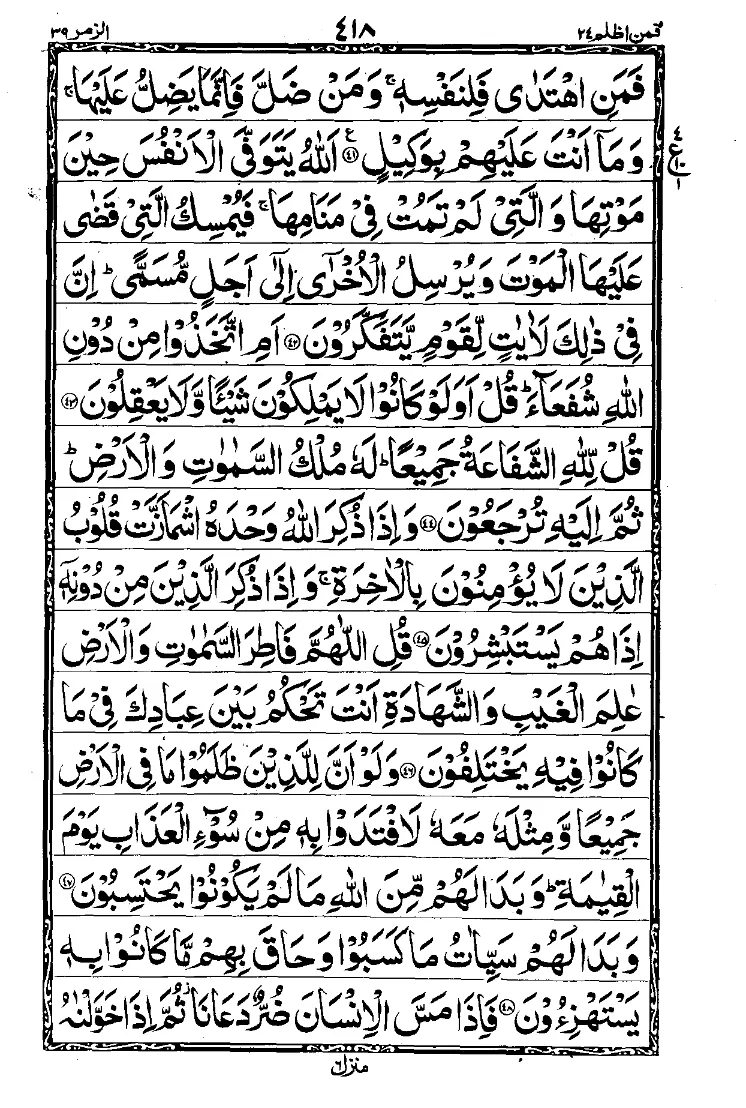 فمن اظلم ٢٤
٤١٨
الزمر ٣٩
فَمَنِ اهْتَدٰى فَلِنَفْسِهٖ ۚ وَمَنْ ضَلَّ فَاِنَّمَا يَضِلُّ عَلَيْهَا ۚ
وَمَاۤ اَنْتَ عَلَيْهِمْ بِوَكِيْلٍ ﴿٤١﴾ اَللّٰهُ يَتَوَفَّى الْاَنْفُسَ حِيْنَ
مَوْتِهَا وَالَّتِيْ لَمْ تَمُتْ فِيْ مَنَامِهَا ۚ فَيُمْسِكُ الَّتِيْ قَضٰى
عَلَيْهَا الْمَوْتَ وَيُرْسِلُ الْاُخْرٰۤى اِلٰۤى اَجَلٍ مُّسَمًّى ؕ اِنَّ
فِيْ ذٰلِكَ لَاٰيٰتٍ لِّقَوْمٍ يَّتَفَكَّرُوْنَ ﴿٤٢﴾ اَمِ اتَّخَذُوْا مِنْ دُوْنِ
اللّٰهِ شُفَعَآءَ ؕ قُلْ اَوَلَوْ كَانُوْا لَا يَمْلِكُوْنَ شَيْـًٔا وَّلَا يَعْقِلُوْنَ ﴿٤٣﴾
قُلْ لِّلّٰهِ الشَّفَاعَةُ جَمِيْعًا ؕ لَهٗ مُلْكُ السَّمٰوٰتِ وَالْاَرْضِ ؕ
ثُمَّ اِلَيْهِ تُرْجَعُوْنَ ﴿٤٤﴾ وَاِذَا ذُكِرَ اللّٰهُ وَحْدَهُ اشْمَاَزَّتْ قُلُوْبُ
الَّذِيْنَ لَا يُؤْمِنُوْنَ بِالْاٰخِرَةِ ۚ وَاِذَا ذُكِرَ الَّذِيْنَ مِنْ دُوْنِهٖۤ
اِذَا هُمْ يَسْتَبْشِرُوْنَ ﴿٤٥﴾ قُلِ اللّٰهُمَّ فَاطِرَ السَّمٰوٰتِ وَالْاَرْضِ
عٰلِمَ الْغَيْبِ وَالشَّهَادَةِ اَنْتَ تَحْكُمُ بَيْنَ عِبَادِكَ فِيْ مَا
كَانُوْا فِيْهِ يَخْتَلِفُوْنَ ﴿٤٦﴾ وَلَوْ اَنَّ لِلَّذِيْنَ ظَلَمُوْا مَا فِي الْاَرْضِ
جَمِيْعًا وَّمِثْلَهٗ مَعَهٗ لَافْتَدَوْا بِهٖ مِنْ سُوْٓءِ الْعَذَابِ يَوْمَ
الْقِيٰمَةِ ؕ وَبَدَا لَهُمْ مِّنَ اللّٰهِ مَا لَمْ يَكُوْنُوْا يَحْتَسِبُوْنَ ﴿٤٧﴾
وَبَدَا لَهُمْ سَيِّاٰتُ مَا كَسَبُوْا وَحَاقَ بِهِمْ مَّا كَانُوْا بِهٖ
يَسْتَهْزِءُوْنَ ﴿٤٨﴾ فَاِذَا مَسَّ الْاِنْسَانَ ضُرٌّ دَعَانَا ۫ ثُمَّ اِذَا خَوَّلْنٰهُ
منزل ٦